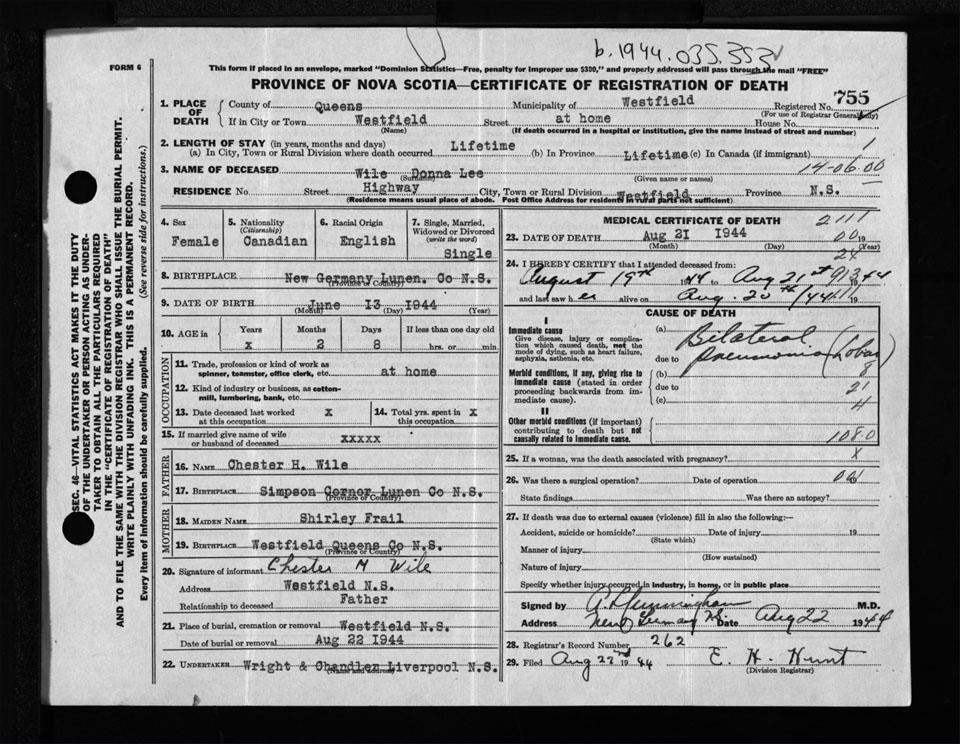 b. 1944. 035.353
FORM 6
This form if placed in an envelope, marked "Dominion Statistics—Free, penalty for improper use $300," and properly addressed will pass through the mail "FREE"
PROVINCE OF NOVA SCOTIA—CERTIFICATE OF REGISTRATION OF DEATH
1. PLACE OF DEATH
County of Queens Municipality of Westfield Registered No. 755
(For use of Registrar General only)
If in City or Town Westfield Street at home House No.
(Name) (If death occurred in a hospital or institution, give the name instead of street and number)
2. LENGTH OF STAY (in years, months and days)
(a) In City, Town or Rural Division where death occurred Lifetime (b) In Province Lifetime (c) In Canada (if immigrant) 1
3. NAME OF DECEASED Wile Donna Lee 14-06.00
(Surname) (Given name or names)
RESIDENCE No. Street Highway City, Town or Rural Division Westfield Province N.S.
(Residence means usual place of abode. Post Office Address for residents in rural parts not sufficient)
4. Sex Female
5. Nationality (Citizenship) Canadian
6. Racial Origin English
7. Single, Married, Widowed or Divorced (write the word) Single
8. BIRTHPLACE New Germany Lunen. Co N.S.
(Province or Country)
9. DATE OF BIRTH June 13 1944
(Month) (Day) (Year)
10. AGE in Years Months Days If less than one day old
x 2 8 hrs. or min.
OCCUPATION
11. Trade, profession or kind of work as spinner, teamster, office clerk, etc. at home
12. Kind of industry or business, as cotton-mill, lumbering, bank, etc.
13. Date deceased last worked at this occupation X
14. Total yrs. spent in this occupation X
15. If married give name of wife or husband of deceased xxxxx
FATHER
16. NAME Chester H. Wile
17. BIRTHPLACE Simpson Cornor Lunen Co N.S.
(Province or Country)
MOTHER
18. MAIDEN NAME Shirley Frail
19. BIRTHPLACE Westfield Queens Co N.S.
(Province or Country)
20. Signature of informant Chester H Wile
Address Westfield N.S.
Relationship to deceased Father
21. Place of burial, cremation or removal Westfield N.S.
Date of burial or removal Aug 22 1944
22. UNDERTAKER Wright & Chandler Liverpool N.S.
(Name and Address)
MEDICAL CERTIFICATE OF DEATH 2111
23. DATE OF DEATH Aug 21 1944 00 19
(Month) (Day) (Year)
24
24. I HEREBY CERTIFY that I attended deceased from:
August 19th 1944 to Aug 21st 1944
and last saw her alive on Aug. 20th /44 19
CAUSE OF DEATH
I
Immediate cause
Give disease, injury or complication which caused death, not the mode of dying, such as heart failure, asphyxia, asthenia, etc.
(a) Bilateral
due to pneumonia (Lobar)
Morbid conditions, if any, giving rise to immediate cause (stated in order proceeding backwards from immediate cause).
(b) 8
due to 21
(c) 4
II
Other morbid conditions (if important) contributing to death but not causally related to immediate cause.
108.0
25. If a woman, was the death associated with pregnancy? X
26. Was there a surgical operation? Date of operation
State findings Was there an autopsy?
27. If death was due to external causes (violence) fill in also the following:—
Accident, suicide or homicide? Date of injury 19
(State which)
Manner of injury
(How sustained)
Nature of injury
Specify whether injury occurred in industry, in home, or in public place
Signed by Cunningham M.D.
Address New Germany N.S. Date Aug 22 1944
28. Registrar's Record Number 262
29. Filed Aug 22nd 1944 E. H. Hunt
(Division Registrar)
SEC. 46—VITAL STATISTICS ACT MAKES IT THE DUTY
OF THE UNDERTAKER OR PERSON ACTING AS UNDER-
TAKER TO OBTAIN ALL THE PARTICULARS REQUIRED
IN THE "CERTIFICATE OF REGISTRATION OF DEATH"
AND TO FILE THE SAME WITH THE DIVISION REGISTRAR WHO SHALL ISSUE THE BURIAL PERMIT.
WRITE PLAINLY WITH UNFADING INK. THIS IS A PERMANENT RECORD.
Every item of information should be carefully supplied. (See reverse side for instructions.)